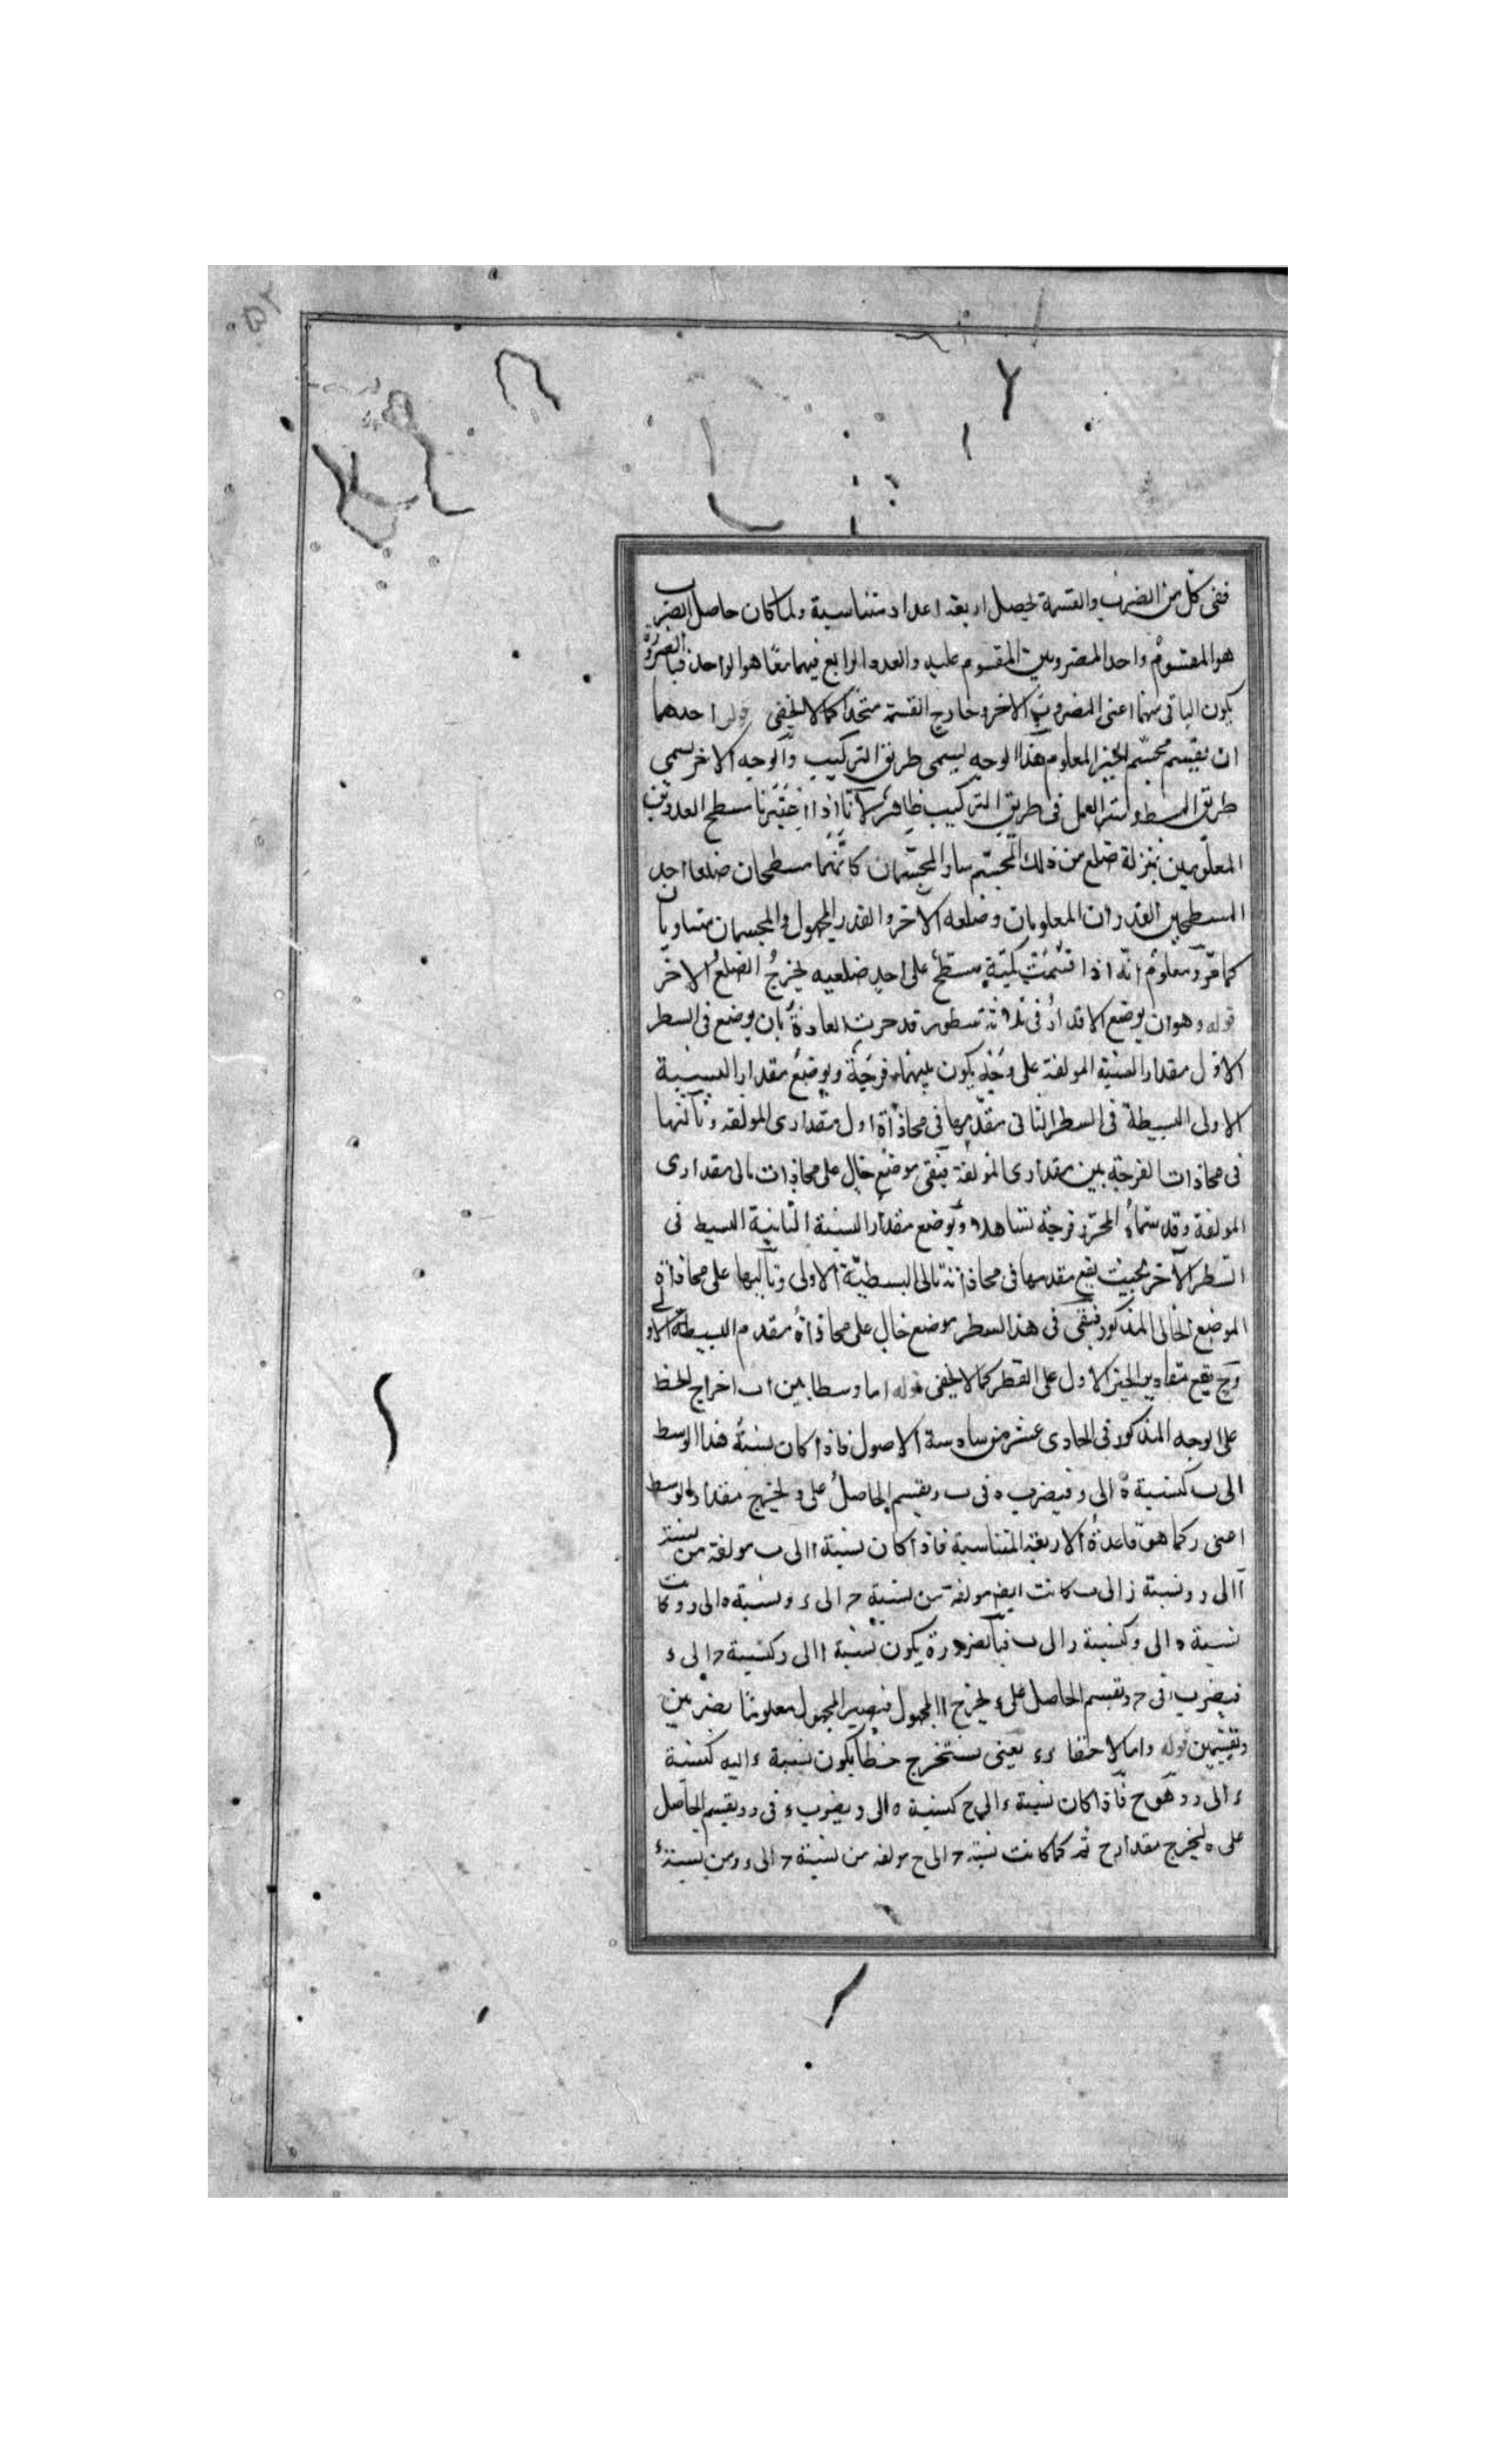 ففى كل من الضرب والقسمة يحصل اربعة اعداد متناسبة ولما كان حاصل الضرب
هو المقسوم واحد المضروبين المقسوم عليه والعدد الرابع فيهما معًا هو الواحد فبالضرورة
يكون الباقى منهما اعنى المضروب الاخر وخارج القسمة متحدًا كما لا يخفى قوله احدهما
ان يقسم مجسّم الحيز المعلوم هذا الوجه يسمى طريق التركيب والوجه الاخر يسمى
طريق البسط ولـ العمل فى طريق التركيب ظاهر لانّا اذا اعتبرنا سطح العددين
المعلومين بمنزلة ضلع من ذلك المجسّم صار المجسّمان كانّهما مسطحان ضلعا احد
المسطحين القدران المعلومان وضلعه الاخر والقدر المجهول والمجسمان متساويان
كما مّر ومعلوم انّه اذا قسّمت كميّة مسطح على احد ضلعيه يخرج الضلع الاخر
قوله وهو ان يوضع الاقدار فى ثلاثة سطور قد جرت العادة بان يوضع فى السطر
الاول مقدارا النسبة المولفة على وجه يكون بينهما فرجة ويوضع مقدارا النسبة
الاولى البسيطة فى السطر الثانى مقدّمها فى محاذاة اول مقدارى المولفة وتاليها
فى محاذات الفرجة بين مقدارى المولفة فيبقى موضع خال على محاذات تالى مقدارى
المولفة وقد سمّاه المحرّر فرجة تشاهدا ويوضع مقدارا النسبة الثانية البسيط فى
السطر الآخر بحيث يقع مقدمها فى محاذاتة تالى البسطيّة الاولى وتاليها على محاذاة
الموضع الخالى المذكور فيبقى فى هذا السطر موضع خال على محاذاة مقدم البسيطة الاولى
وح يقع مقادير الحيز الاول على القطر كما لا يخفى قوله اما وسطا بين ا ب اخراج الخط
على الوجه المذكور فى الحادى عشر من سادسة الاصول فاذا كان نسبة هذا الوسط
الى ب كنسبة ه الى و فيضرب ه فى ب ويقسم الحاصل على و ليخرج مقدار الوسط
اعنى ر كما هو قاعدة الاربعة المتناسبة فاذا كان نسبة ا الى ب مولفة من نسبة
ا الى ر ونسبة ز الى ب كانت ايضم مولفة من نسبة ح الى ء ونسبة ه الى و وكانت
نسبة ه الى و كنسبة ر الى ب فبالضرورة يكون نسبة ا الى ر كنسبة ح الى ء
فيضرب ر فى ح ويقسم الحاصل على ء ليخرج ا المجهول فيصير المجهول معلومًا بضربين
وتقسيمين قوله واما لاحقا ء يعنى نستخرج خطا يكون نسبة ء اليه كنسبة
ه الى و وهو ح فاذا كان نسبة ء الى ح كنسبة ه الى و يضرب ء فى و ويقسم الحاصل
على ه ليخرج مقدار ح ثم كما كانت نسبة ح الى ح مولفه من نسبة ح الى ء ومن نسبة ء